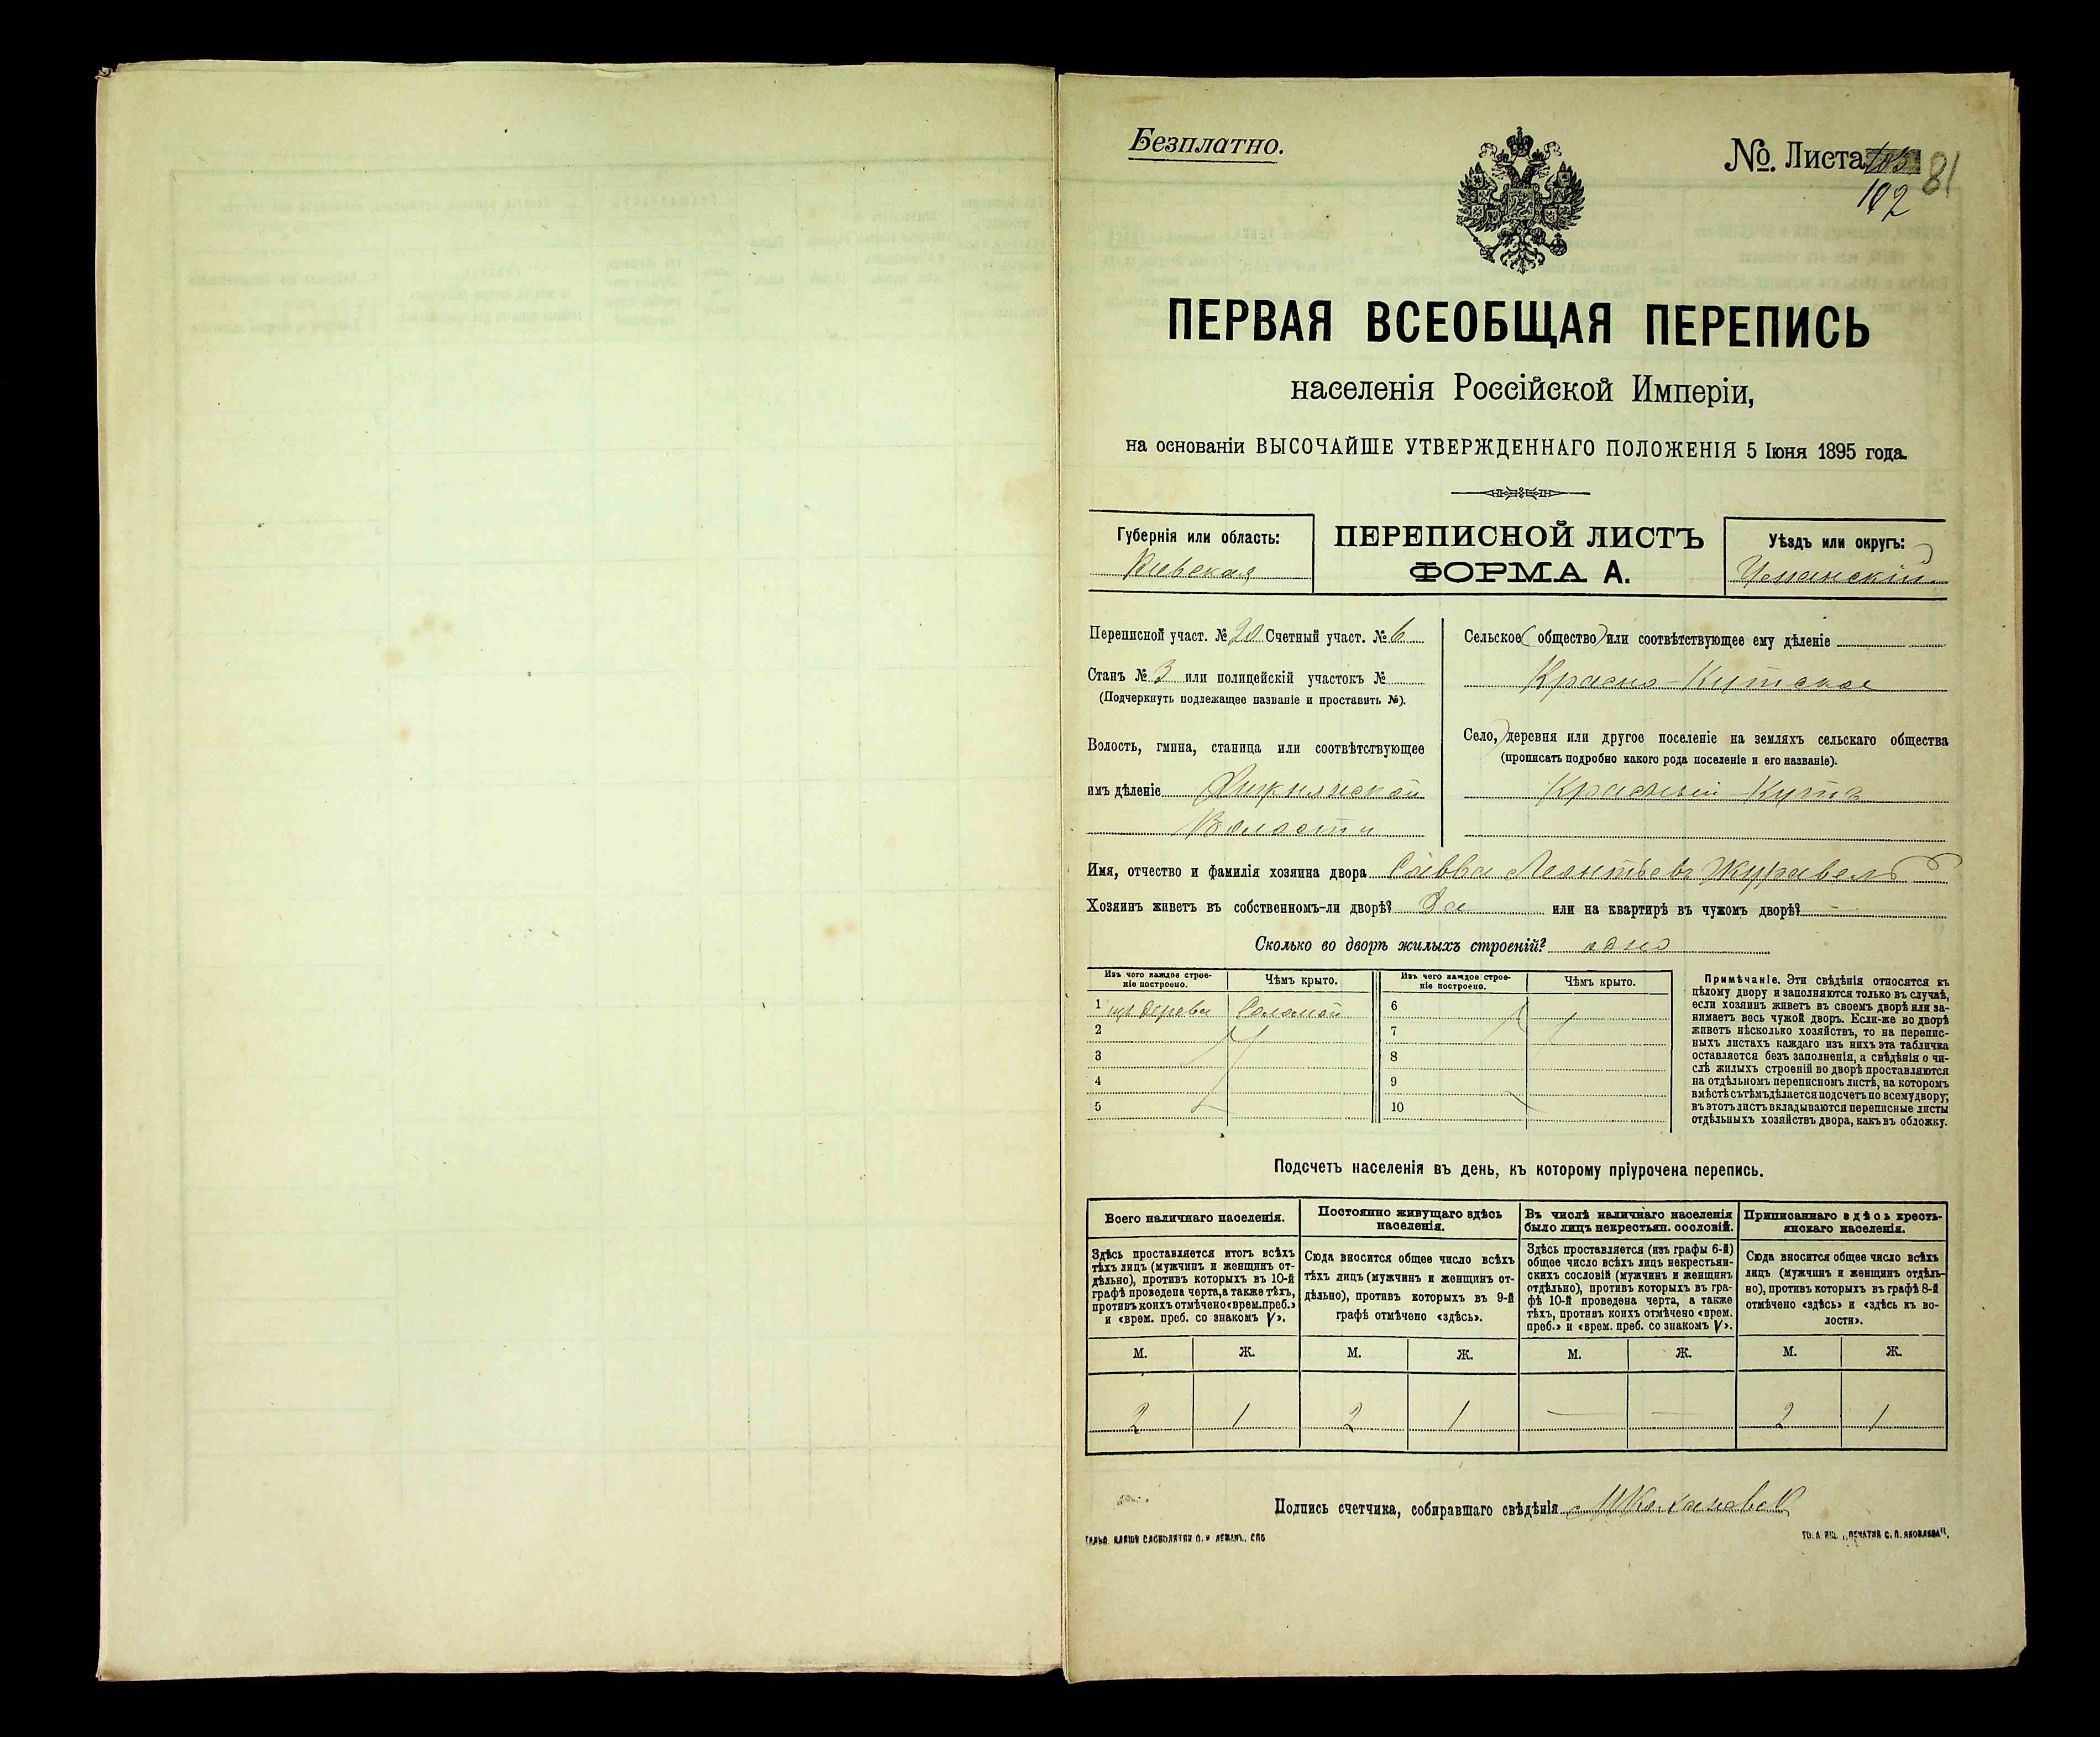 Безплатно.
№. Листа 103 81
102
ПЕРВАЯ ВСЕОБЩАЯ ПЕРЕПИСЬ
населенія Россійской Имперіи,
на основаніи ВЫСОЧАЙШЕ УТВЕРЖДЕННАГО ПОЛОЖЕНІЯ 5 Іюня 1895 года.
Губернія или область:
Кіевская
ПЕРЕПИСНОЙ ЛИСТЪ
ФОРМА А.
Уѣздъ или округъ:
Уманскій
Переписной участ. № 20 Счетный участ. № 6
Станъ № 3 или полицейскій участокъ №
(Подчеркнуть подлежащее названіе и проставить №).
Волость, гмина, станица или соотвѣтствующее
имъ дѣленіе
Волости
Сельское (общество) или соотвѣтствующее ему дѣленіе
Красно-Кутское
Село,) деревня или другое поселеніе на земляхъ сельскаго общества
(прописать подробно какого рода поселеніе и его названіе).
Красный-Кутъ
Имя, отчество и фамилія хозяина двора Савва Леонтьевъ Журавель
Хозяинъ живетъ въ собственномъ-ли дворѣ? Да или на квартирѣ въ чужомъ дворѣ? —
Сколько во дворѣ жилыхъ строеній? одно
Изъ чего каждое строе-
ніе построено.
Чѣмъ крыто.
Изъ чего каждое строе-
ніе построено.
Чѣмъ крыто.
1 изъ дерева Соломой 6
2 7
3 8
4 9
5 10
Примѣчаніе. Эти свѣдѣнія относятся къ
цѣлому двору и заполняются только въ случаѣ,
если хозяинъ живетъ въ своемъ дворѣ или за-
нимаетъ весь чужой дворъ. Если-же во дворѣ
живетъ нѣсколько хозяйствъ, то на перепис-
ныхъ листахъ каждаго изъ нихъ эта табличка
оставляется безъ заполненія, а свѣдѣнія о чи-
слѣ жилыхъ строеній во дворѣ проставляются
на отдѣльномъ переписномъ листѣ, на которомъ
вмѣстѣ съ тѣмъ дѣлается подсчетъ по всему двору;
въ этотъ листъ вкладываются переписные листы
отдѣльныхъ хозяйствъ двора, какъ въ обложку.
Подсчетъ населенія въ день, къ которому пріурочена перепись.
Всего наличнаго населенія.
Здѣсь проставляется итогъ всѣхъ
тѣхъ лицъ (мужчинъ и женщинъ от-
дѣльно), противъ которыхъ въ 10-й
графѣ проведена черта, а также тѣхъ,
противъ коихъ отмѣчено «врем. преб.»
и «врем. преб. со знакомъ V».
Постоянно живущаго здѣсь
населенія.
Сюда вносится общее число всѣхъ
тѣхъ лицъ (мужчинъ и женщинъ от-
дѣльно), противъ которыхъ въ 9-й
графѣ отмѣчено «здѣсь».
Въ числѣ наличнаго населенія
было лицъ некрестьян. сословій.
Здѣсь проставляется (изъ графы 6-й)
общее число всѣхъ лицъ некрестьян-
скихъ сословій (мужчинъ и женщинъ
отдѣльно), противъ которыхъ въ гра-
фѣ 10-й проведена черта, а также
тѣхъ, противъ коихъ отмѣчено «врем.
преб.» и «врем. преб. со знакомъ V».
Приписаннаго здѣсь кресть-
янскаго населенія.
Сюда вносится общее число всѣхъ
лицъ (мужчинъ и женщинъ отдѣль-
но), противъ которыхъ въ графѣ 8-й
отмѣчено «здѣсь» и «здѣсь къ во-
лости».
М. Ж. М. Ж. М. Ж. М. Ж.
2 1 2 1 — — 2 1
Подпись счетчика, собиравшаго свѣдѣнія